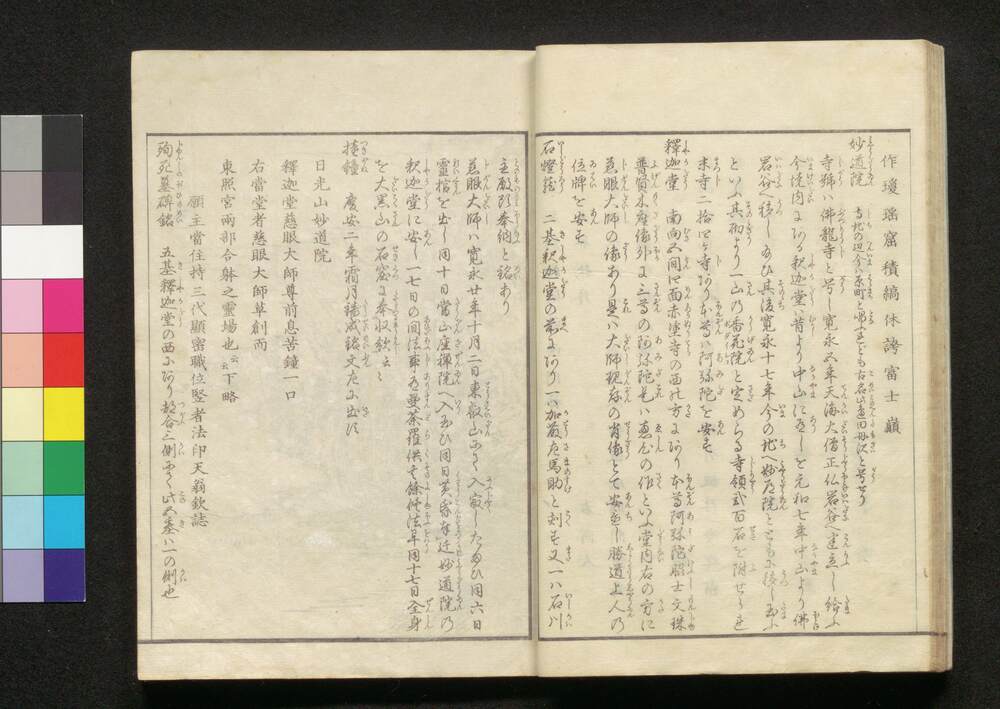 作瓊瑶窟積縞休誇富士巔
妙道院 寺地の辺今は原町と唱ふれども古名山道田母沢と号せり
寺号ハ佛龍寺と号し寛永五年天海大僧正仏岩谷へ建立し給ふ
今境内にある釈迦堂ハ昔より中山に在しを元和七年中山より佛
岩谷へ移し玉ひ其後寛永十七年今の地へ妙道院とともに移し玉ふ
といふ其初より一山の香花院と定めらる寺領弐百石を附せらる
末寺二拾四ケ寺あり本尊ハ阿弥陀を安す
釋迦堂 南向五間四面赤塗寺の西の方にあり本尊阿弥陀脇士文殊
普賢木座像外に三尊の阿弥陀是ハ恵心の作といふ堂内右の方に
慈眼大師の像あり是ハ大師現存の肖像とて安置し勝道上人の
位牌を安す
石燈籠 二基釈迦堂の前にあり一ハ加藤左馬助と刻す又一ハ石川
主殿頭奉納と銘あり
慈眼大師ハ寛永廿年十月二日東叡山にて入寂したまひ同六日
霊棺を出し同十日當山座禅院へ入玉ひ同日黄昏に近妙道院の
釈迦堂に安し一七日の間法事あり曼荼羅供其餘修法畢同十七日全身
を大黒山の石窟に奉収歛云々
撞鐘 慶安二年霜月鋳成銘文左に出す
日光山妙道院
釋迦堂慈眼大師尊前息苦鐘一口
右當堂者慈眼大師草創而
東照宮兩部合躰之靈場也云云下略
願主當住持三代顯密職位竪者法印天翁欽誌
殉死墓碑銘 五基釋迦堂の西にあり都合三側の